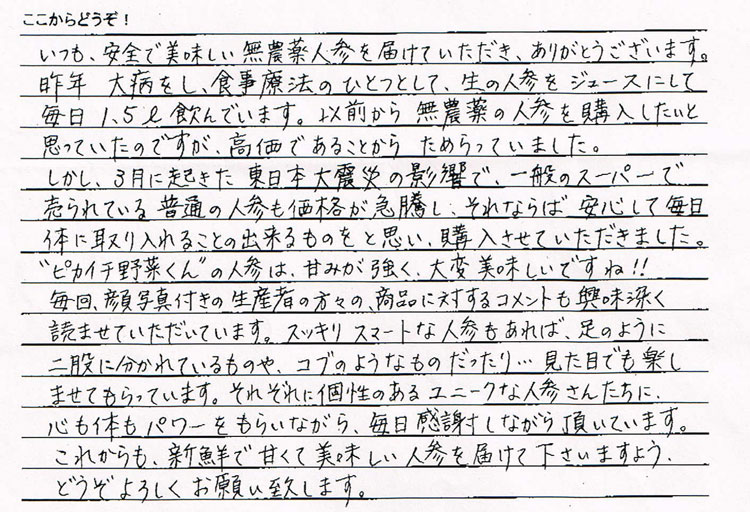 ここからどうぞ！
いつも、安全で美味しい無農薬人参を届けていただき、ありがとうございます。
昨年 大病をし、食事療法のひとつとして、生の人参をジュースにして
毎日1.5ℓ飲んでいます。以前から無農薬の人参を購入したいと
思っていたのですが、高価であることからためらっていました。
しかし、3月に起きた東日本大震災の影響で、一般のスーパーで
売られている普通の人参も価格が急騰し、それならば安心して毎日
体に取り入れることの出来るものをと思い、購入させていただきました。
“ピカイチ野菜くん”の人参は、甘みが強く、大変美味しいですね!!
毎回、顔写真付きの生産者の方々の、商品に対するコメントも興味深く
読ませていただいています。スッキリスマートな人参もあれば、足のように
二股に分かれているものや、コブのようなものだったり…見た目でも楽し
ませてもらっています。それぞれに個性のあるユニークな人参さんたちに、
心も体もパワーをもらいながら、毎日感謝しながら頂いています。
これからも、新鮮で甘くて美味しい人参を届けて下さいますよう、
どうぞよろしくお願い致します。